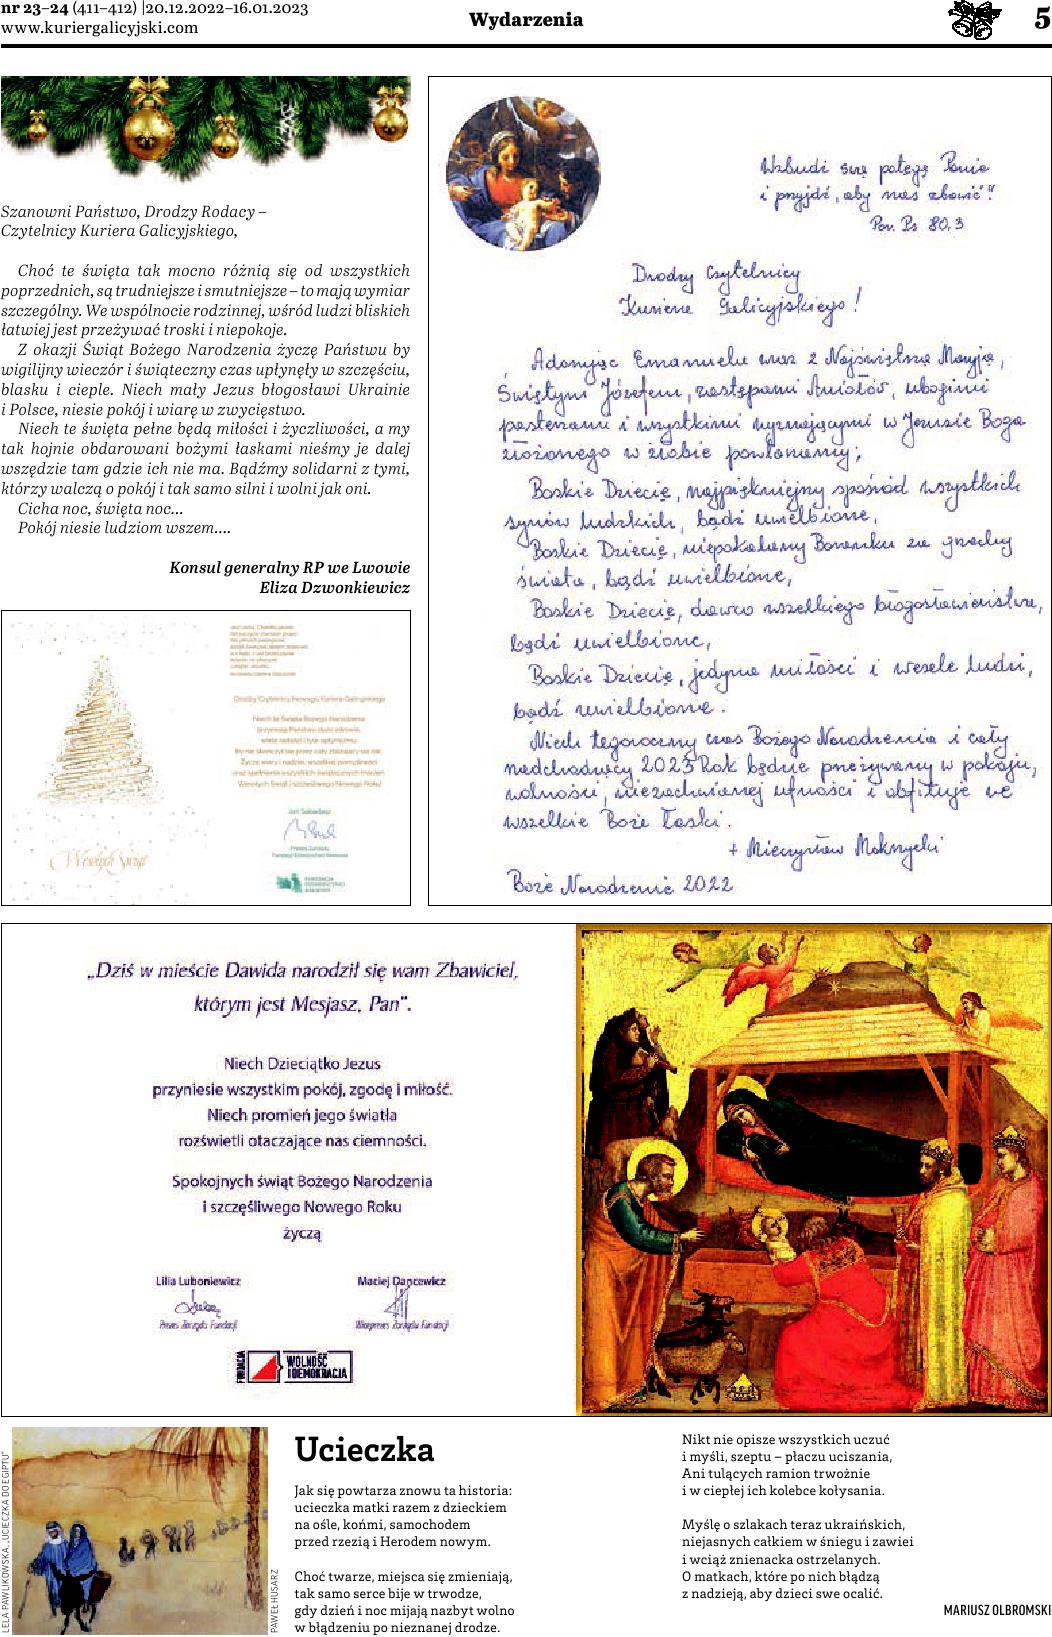 nr 23–24 (411–412) |20.12.2022–16.01.2023
www.kuriergalicyjski.com
Wydarzenia
5
Szanowni Państwo, Drodzy Rodacy –
Czytelnicy Kuriera Galicyjskiego,
Choć te święta tak mocno różnią się od wszystkich
poprzednich, są trudniejsze i smutniejsze – to mają wymiar
szczególny. We wspólnocie rodzinnej, wśród ludzi bliskich
łatwiej jest przeżywać troski i niepokoje.
Z okazji Świąt Bożego Narodzenia życzę Państwu by
wigilijny wieczór i świąteczny czas upłynęły w szczęściu,
blasku i cieple. Niech mały Jezus błogosławi Ukrainie
i Polsce, niesie pokój i wiarę w zwycięstwo.
Niech te święta pełne będą miłości i życzliwości, a my
tak hojnie obdarowani bożymi łaskami nieśmy je dalej
wszędzie tam gdzie ich nie ma. Bądźmy solidarni z tymi,
którzy walczą o pokój i tak samo silni i wolni jak oni.
Cicha noc, święta noc...
Pokój niesie ludziom wszem....
Konsul generalny RP we Lwowie
Eliza Dzwonkiewicz
Drodzy Czytelnicy Nowego Kuriera Galicyjskiego
Niech te Święta Bożego Narodzenia
przyniosą Państwu dużo zdrowia,
wiele radości i tyle optymizmu,
By nie skończył się przez cały zbliżający się rok.
Życzę wiary i nadziei, wszelkiej pomyślności
oraz spełnienia wszystkich świątecznych marzeń
Wesołych Świąt i szczęśliwego Nowego Roku!
Prezes Zarządu
Wesołych Świąt
Wzbudź swą potęgę Panie
i przyjdź, aby nas zbawić".
Por. Ps 80,3
Drodzy Czytelnicy
Kuriera Galicyjskiego!
Adorując Emanuela wraz z Najświętszą Maryją,
Świętym Józefem, zastępami Aniołów, ubogimi
pasterzami i wszystkimi wyznającymi w Jezusie Boga
złożonego w żłobie powtarzamy;
Boskie Dziecię, najpiękniejszy spośród wszystkich
synów ludzkich, bądź uwielbione,
Boskie Dziecię, niepokalany Baranku za grzechy
świata, bądź uwielbione,
Boskie Dziecię, dawco wszelkiego błogosławieństwa,
bądź uwielbione,
Boskie Dziecię, jedyna miłości i wesele ludzi,
bądź uwielbione.
Niech tegoroczny czas Bożego Narodzenia i cały
nadchodzący 2023 Rok będzie przeżywany w pokoju,
wolności, niezachwianej ufności i obfituje we
wszelkie Boże łaski.
+ Mieczysław Mokrzycki
Boże Narodzenie 2022
„Dziś w mieście Dawida narodził się wam Zbawiciel,
którym jest Mesjasz, Pan".
Niech Dzieciątko Jezus
przyniesie wszystkim pokój, zgodę i miłość.
Niech promień jego światła
rozświetli otaczające nas ciemności.
Spokojnych świąt Bożego Narodzenia
i szczęśliwego Nowego Roku
życzą
Lilia Luboniewicz
Prezes Zarządu Fundacji
Maciej Dancewicz
Wiceprezes Zarządu Fundacji
FUNDACJA
WOLNOŚĆ
I DEMOKRACJA
LELA PAWLIKOWSKA, „UCIECZKA DO EGIPTU"
PAWEŁ HUSARZ
Ucieczka
Jak się powtarza znowu ta historia:
ucieczka matki razem z dzieckiem
na ośle, końmi, samochodem
przed rzezią i Herodem nowym.
Choć twarze, miejsca się zmieniają,
tak samo serce bije w trwodze,
gdy dzień i noc mijają nazbyt wolno
w błądzeniu po nieznanej drodze.
Nikt nie opisze wszystkich uczuć
i myśli, szeptu – płaczu uciszania,
Ani tulących ramion trwożnie
i w ciepłej ich kolebce kołysania.
Myślę o szlakach teraz ukraińskich,
niejasnych całkiem w śniegu i zawiei
i wciąż znienacka ostrzelanych.
O matkach, które po nich błądzą
z nadzieją, aby dzieci swe ocalić.
MARIUSZ OLBROMSKI